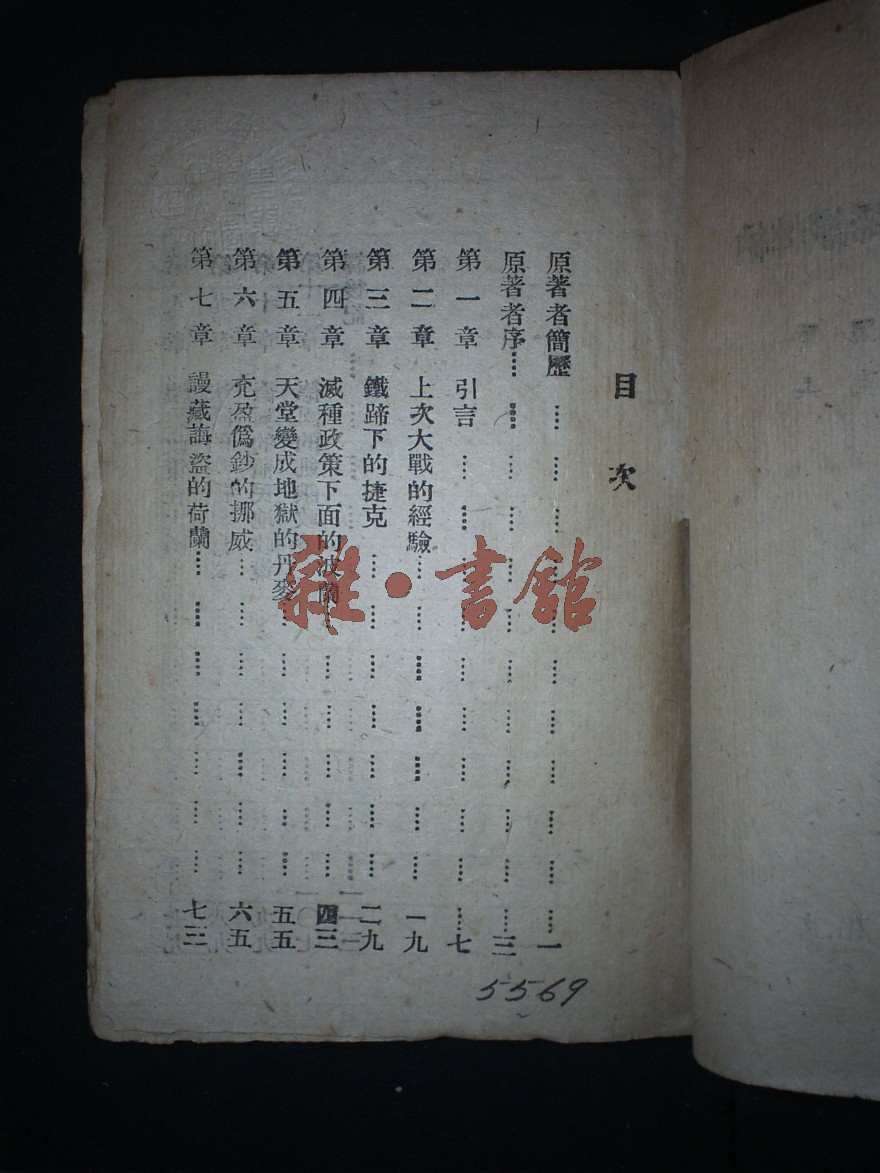 目次
原著者簡歷……一
原著者序……三
第一章 引言……七
第二章 上次大戰的經驗……一九
第三章 鐵蹄下的捷克……二九
第四章 滅種政策下面的波蘭……四三
第五章 天堂變成地獄的丹麥……五五
第六章 充盈僞鈔的挪威……六五
第七章 謾藏誨盜的荷蘭……七三
5569
雜·書館